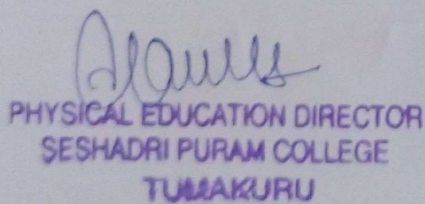 PHYSICAL EDUCATION DIRECTOR
SESHADRI PURAM COLLEGE
TUMAKURU